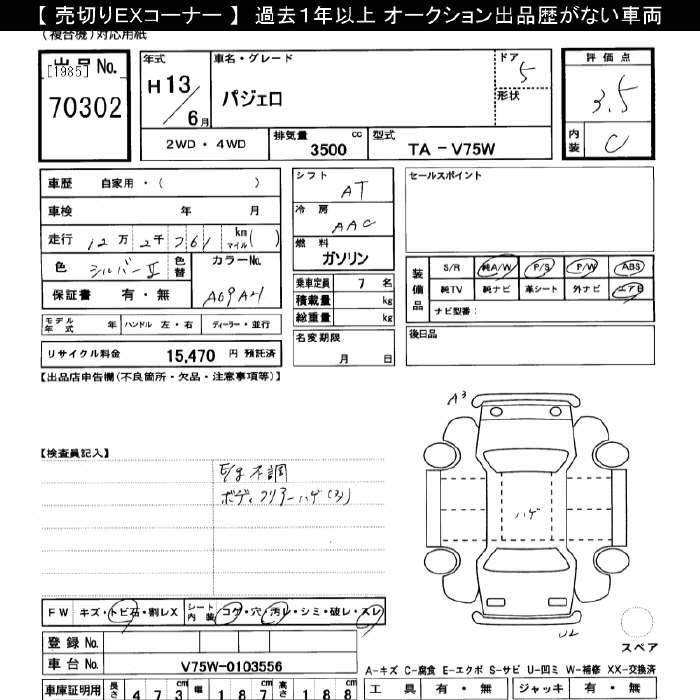 【 売切りEXコーナー 】 過去１年以上 オークション出品歴がない車両
(複合機)対応用紙
出品 No.
[1985]
70302
年式
H 13 / 6月
車名・グレード
パジェロ
ドア
5
形状
評価点
3.5
内装
C
2WD ・ 4WD
排気量 cc
3500
型式
TA － V75W
車歴 自家用 ・ ( )
車検 年 月
走行 12 万 2 千 761 km マイル ( )
色 シルバーⅡ
色替
カラーNo.
保証書 有 ・ 無
A69A
モデル年式 年 ハンドル 左・右 ディーラー・並行
リサイクル料金 15,470 円 預託済
シフト
AT
冷房
AAC
燃料
ガソリン
乗車定員 7 名
積載量 kg
総重量 kg
名変期限
月 日
セールスポイント
装備品
S/R 純A/W P/S P/W ABS
純TV 純ナビ 革シート 外ナビ エアB
ナビ型番：
後日品
【出品店申告欄(不良箇所・欠品・注意事項等)】
【検査員記入】
E/g 不調
ボディクリアーハゲ(3)
A3
ハゲ
U2
スペア
FW キズ・トビ石・割レX シート内装 コゲ・穴・汚レ・シミ・破レ・スレ
登録 No.
車台 No. V75W-0103556
A-キズ C-腐食 E-エクボ S-サビ U-凹ミ W-補修 XX-交換済
車庫証明用 長さ 473 cm 幅 187 cm 高さ 188 cm
工具 有 ・ 無 ジャッキ 有 ・ 無